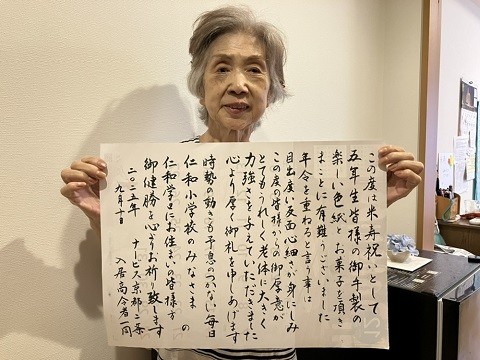 この度は米寿祝いとして
五年生皆様の御手製の
楽しい色紙とお菓子を頂き
まことに有難うございました
年令を重ねると言う事は
目出度い反面心細さが身にしみ
この度の皆様からの御厚意が
とてもうれしく老体に大きく
力強さを与えていただきました
心より厚く御礼を申しあげます
時勢の動きも予息のつかない毎日
仁和小学校のみなさま の
仁和学区にお住まいの皆様方
御健勝を心よりお祈り致します
二〇二五年
九月十日
ナービス京都二条
入居高令者一同